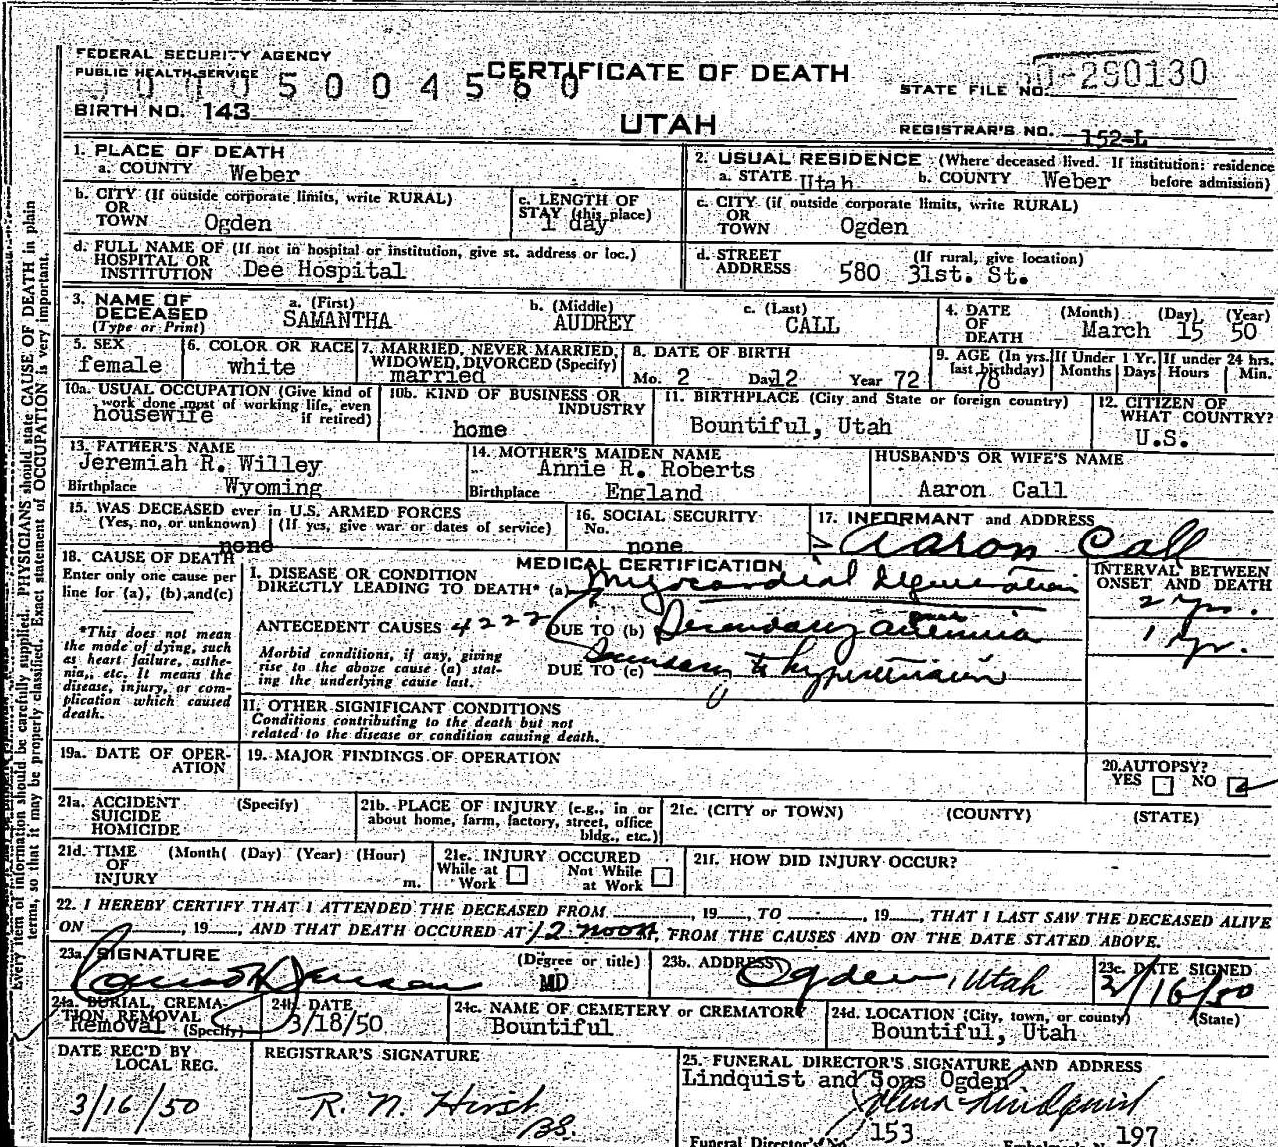 FEDERAL SECURITY AGENCY
PUBLIC HEALTH SERVICE
CERTIFICATE OF DEATH
5004560
STATE FILE NO. -290130
BIRTH NO. 143
UTAH
REGISTRAR'S NO. 152-L
1. PLACE OF DEATH
a. COUNTY Weber
2. USUAL RESIDENCE (Where deceased lived. If institution: residence
a. STATE Utah b. COUNTY Weber before admission)
b. CITY (If outside corporate limits, write RURAL)
OR
TOWN Ogden
c. LENGTH OF
STAY (this place)
1 day
c. CITY (if outside corporate limits, write RURAL)
OR
TOWN Ogden
d. FULL NAME OF (If not in hospital or institution, give st. address or loc.)
HOSPITAL OR
INSTITUTION Dee Hospital
d. STREET (If rural, give location)
ADDRESS 580 31st. St.
3. NAME OF
DECEASED
(Type or Print)
a. (First) b. (Middle) c. (Last)
SAMANTHA AUDREY CALL
4. DATE
OF
DEATH
(Month) (Day) (Year)
March 15 50
5. SEX
female
6. COLOR OR RACE
white
7. MARRIED, NEVER MARRIED,
WIDOWED, DIVORCED (Specify)
married
8. DATE OF BIRTH
Mo. 2 Day 12 Year 72
9. AGE (In yrs.
last birthday)
78
If Under 1 Yr.
Months Days
If under 24 hrs.
Hours Min.
10a. USUAL OCCUPATION (Give kind of
work done most of working life, even
if retired)
housewife
10b. KIND OF BUSINESS OR
INDUSTRY
home
11. BIRTHPLACE (City and State or foreign country)
Bountiful, Utah
12. CITIZEN OF
WHAT COUNTRY?
U.S.
13. FATHER'S NAME
Jeremiah R. Willey
Birthplace Wyoming
14. MOTHER'S MAIDEN NAME
Annie R. Roberts
Birthplace England
HUSBAND'S OR WIFE'S NAME
Aaron Call
15. WAS DECEASED ever in U.S. ARMED FORCES
(Yes, no, or unknown) (If yes, give war or dates of service)
none
16. SOCIAL SECURITY
No.
none
17. INFORMANT and ADDRESS
Aaron Call
18. CAUSE OF DEATH
Enter only one cause per
line for (a), (b), and (c)
*This does not mean
the mode of dying, such
as heart failure, asthe-
nia, etc. It means the
disease, injury, or com-
plication which caused
death.
MEDICAL CERTIFICATION
INTERVAL BETWEEN
ONSET AND DEATH
I. DISEASE OR CONDITION
DIRECTLY LEADING TO DEATH* (a) Myocardial degeneration
2 yrs.
ANTECEDENT CAUSES 4222 DUE TO (b) Secondary anemia
1 yr.
Morbid conditions, if any, giving
rise to the above cause (a) stat-
ing the underlying cause last.
DUE TO (c) Secondary to hypertension
II. OTHER SIGNIFICANT CONDITIONS
Conditions contributing to the death but not
related to the disease or condition causing death.
19a. DATE OF OPER-
ATION
19. MAJOR FINDINGS OF OPERATION
20. AUTOPSY?
YES NO
21a. ACCIDENT (Specify)
SUICIDE
HOMICIDE
21b. PLACE OF INJURY (e.g., in or
about home, farm, factory, street, office
bldg., etc.)
21c. (CITY or TOWN) (COUNTY) (STATE)
21d. TIME (Month( (Day) (Year) (Hour)
OF
INJURY m.
21e. INJURY OCCURED
While at Work Not While at Work
21f. HOW DID INJURY OCCUR?
22. I HEREBY CERTIFY THAT I ATTENDED THE DECEASED FROM , 19 , TO , 19 , THAT I LAST SAW THE DECEASED ALIVE
ON , 19 , AND THAT DEATH OCCURED AT 12 noon, FROM THE CAUSES AND ON THE DATE STATED ABOVE.
23a. SIGNATURE (Degree or title)
MD
23b. ADDRESS
Ogden, Utah
23c. DATE SIGNED
3/16/50
24a. BURIAL, CREMA-
TION, REMOVAL
Removal (Specify)
24b. DATE
3/18/50
24c. NAME OF CEMETERY or CREMATORY
Bountiful
24d. LOCATION (City, town, or county) (State)
Bountiful, Utah
DATE REC'D BY
LOCAL REG.
3/16/50
REGISTRAR'S SIGNATURE
R. N. Hirst
BS.
25. FUNERAL DIRECTOR'S SIGNATURE AND ADDRESS
Lindquist and Sons Ogden
John Lindquist
Funeral Director's No. 153 197
Every item of information should be carefully supplied. PHYSICIANS should state CAUSE OF DEATH in plain
terms, so that it may be properly classified. Exact statement of OCCUPATION is very important.